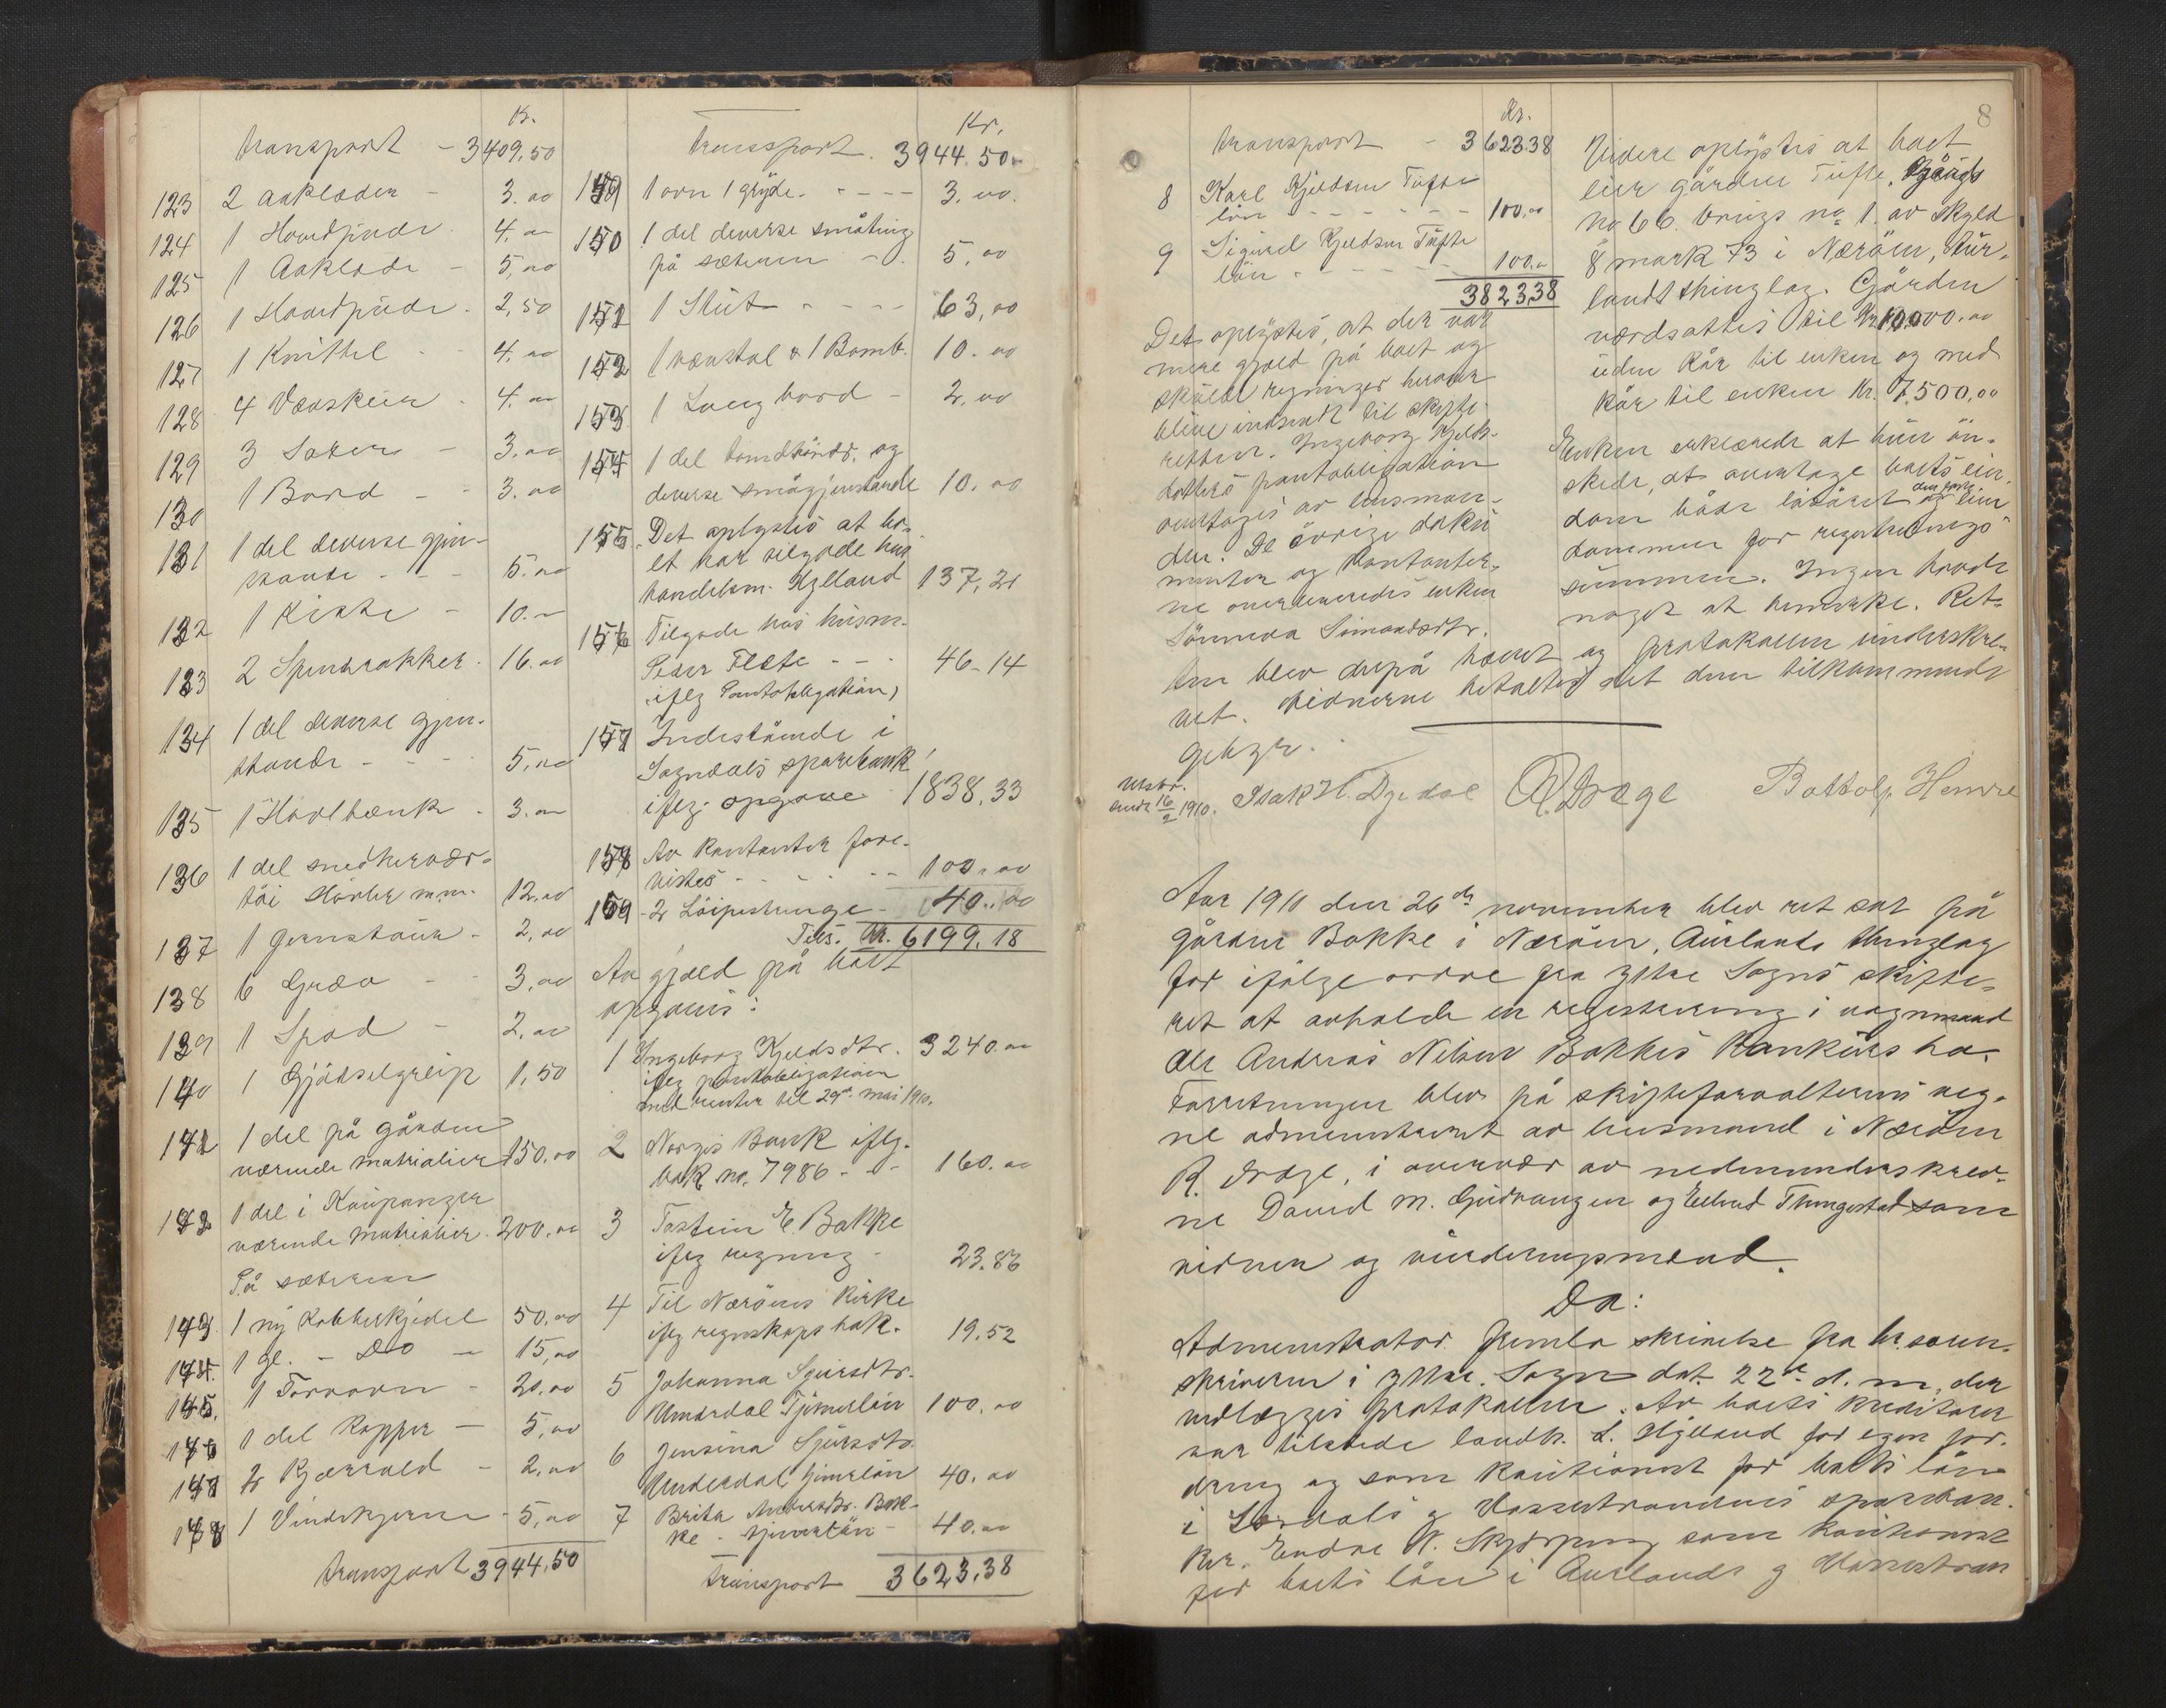 Kr.
Transport - 3409,50
123 2 Aaklæder - 3.00
124 1 Hovedpude 4.00
125 1 Aaklæde - 5,00
126 1 Hovedpude. 2,50
127 1 Knittel - 4.00
128 4 4.00
129 3 - 3.00
130 1 Bord - - 3.00
131 1 del diverse gjen-
stande - - 5.00
132 1 Kiste - 10.-
133 2 Spindrokker. 16.00
134 1 del diverse gjen-
stande - - - 5,00
135 1 Høvlbænk - 3.00
136 1 del snedkervær-
tøi Høvler m.m. 12.00
137 1 Jernstaur - 2,00
138 6 - 3,00
139 1 Spad - 2,00
140 1 Gjødselgreip 1,50
141 1 del på gården
værende matrialier 150.00
142 1 del i Kaupanger
værende matrialier. 200.00
På sæteren
143 1 ny Kobberkjedel 50.00
144. 1 gl. - Do - 15,00
145. 1 - 20.00
146 1 del Kopper - 5,00
147 2 Kjærald - 2,00
148 1 - 5,00
Transport 3944,50
Kr.
Transport. 3944.50
149 1 ovn 1 gryde. - - - - 3.00.
150 1 del diverse småting
på sæteren - . 5.00
151 1 Stut - - - - 63,00
152 1 vævstol & 1 Bomb. 10.00
153 1 Langbord - 2.00
154 1 del og
diverse smågjenstande 10.00
155 Det oplystes at bo-
et har tilgode hos
handelsm. Hylland 137,21
156 Tilgode hos husm.
Peder - - - 46-14
iflg Pantobligation,
157 Indestående i
Sogndals sparebank
iflg. opgave 1838,33
158 Av Kontanter fore-
vistes - - - - - - 100.00
159 - 2 40.00
Tils. Kr. 6199,18
Av gjæld på boet
opgaves:
1 Ingeborg Kjeldsdtr. 3240.00
iflg pantobligation
med renter til 29de mai 1910.
2 Norges Bank iflg.
bok no. 7986 - - 160.00
3 Tostein E. Bakke
iflg regning - 23.86
4 Til Nærøens Kirke
iflg regnskaps bok. 19,52
5 Johanna Sjursdtr.
Underdal Tjenerløn 100.00
6 Jensina Sjursdtr.
Underdal, tjenerløn 40.00
7 Brita Andersdtr. Bak-
ke - tjenerløn - 40.00
Transport 3623,38
8
Kr.
Transport - 3623.38
8 Karl Kjeldsen Tufte
løn - - - - - - 100.00
9 Sigurd Kjeldsen Tufte
løn - - - - - 100.00
3823.38
Det oplystes, at der var
mere gjæld på boet og
skulde regninger herover
blive indsendt til skifte-
retten. Ingeborg Kjelds-
datters pantobligation
overtages av lensman-
den. De øvrige doku-
menter og Kontanter-
ne overleveredes enken
Sønneva Simondsdtr.
Videre oplystes at boet
eier gården Tufte, Gårds
no 66 brugs no 1. av skyld
8 mark 73 i Nærøen, Aur-
lands thinglag. Gården
værdsattes til Kr 10.000.00
uden Kår til enken og med
kår til enken Kr. 7.500,00
Enken erklærede at hun øn-
skede, at overtage boets eien-
dom både løsøret og den faste eien
dommen for registrerings
summen. Ingen havde
noget at bemærke. Ret-
ten blev derpå hævet og protokollen underskre-
vet. Vidnerne betaltes det dem tilkommende
gebyr.
Utskr.
sendt 16/2 1910. Isak H. Dyrdal R. Drege Bottolf Hemre
Aar 1910 den 26de november blev ret sat på
gården Bakke i Nærøen, Aurlands thinglag
for ifølge ordre fra Ytre Sogns skifte-
ret at avholde en registrering i vognmand
Ole Andreas Nilsen Bakkes Konkurs bo.
Forretningen blev på skifteforvalterens veg-
ne administreret av lensmand i Nærøen
R. Drege, i overvær av nedenunderskrev-
ne David M. Gudvangen og Eilend Thungestad som
vidner og vurderingsmænd.
Da:
Administrator fremla skrivelse fra hr. soren-
skriveren i Ytre Sogn dat. 22de d. m. der
vedlægges protokollen. Av boets kreditorer
var tilstede landh. L. Hylland for egen for-
dring og som kautionist for boets lån
i og Vossestrandens sparebank.
Endre N. Skjerping som kautionist
for boets lån i Aurlands og Vossestran